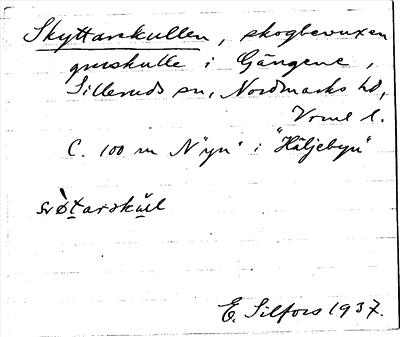 Skyttarekullen, skogbevuxen
gruskulle i Gängene,
Silleruds sn, Nordmarks hd,
Vrml l.
C. 100 m N "yn" i "Häljebyn"
E. Silfors 1937.